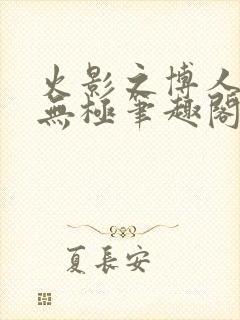 火影之博人
無極筆趣閣
夏長安